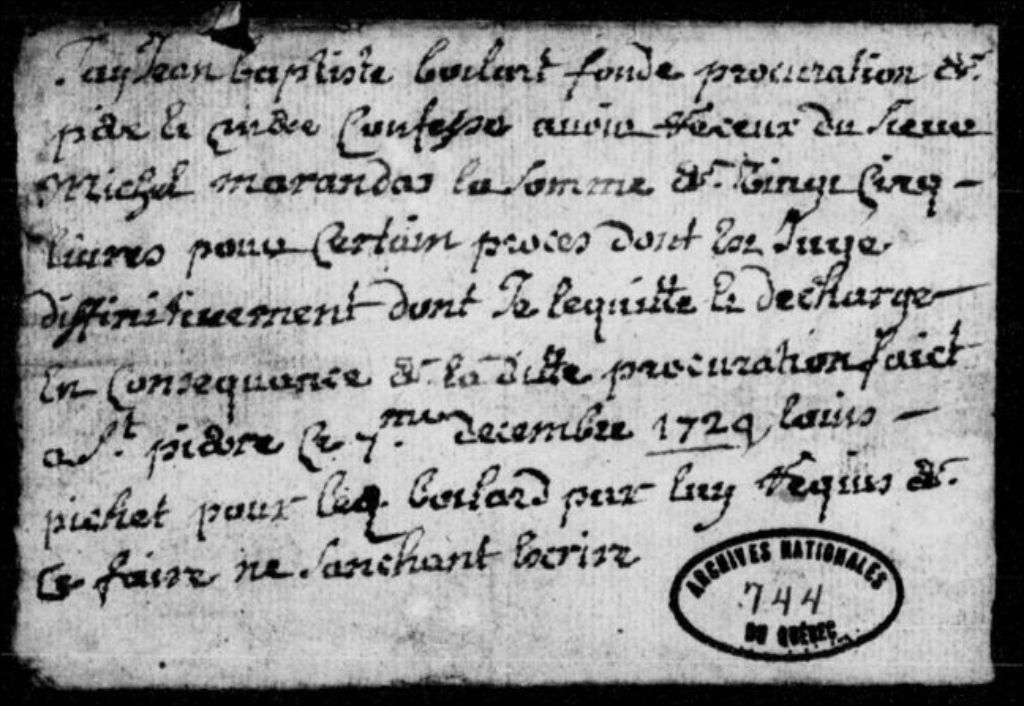 Jay Jean baptiste boilart fondé procuration de
pier le confesse avoir Receux du sieur
Michel marandas la somme de Vingt Cinq
livres pour Certain proces dont Est Jugé
diffinitivement dont Je lequitte Et decharge
En Consequance de la ditte procuration faict
a St pierre Ce 7me decembre 1724 louis
pichet pour leq boilard par luy Requis de
Ce faire ne sanchant Escrire
ARCHIVES NATIONALES
744
DU QUÉBEC